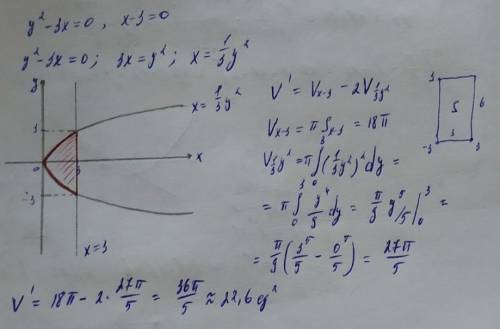 y² - 3x = 0 , x - 3 = 0
y² - 3x = 0 ; 3x = y² ; x = 1/3 y²
y
x = 1/3 y²
3
0
3
x
-3
x = 3
V' = Vₓ₌₃ - 2V 1/3 y²
Vₓ₌₃ = π Sₓ₌₃ = 18π
V 1/3 y² = π ∫₀³ (1/3 y²)² dy =
= π ∫₀³ y⁴/9 dy = π/9 y⁵/5 |₀³ =
= π/9 (3⁵/5 - 0⁵/5) = 27π/5
3
S
6
3
-3
3
V' = 18π - 2 · 27π/5 = 36π/5 ≈ 22,6